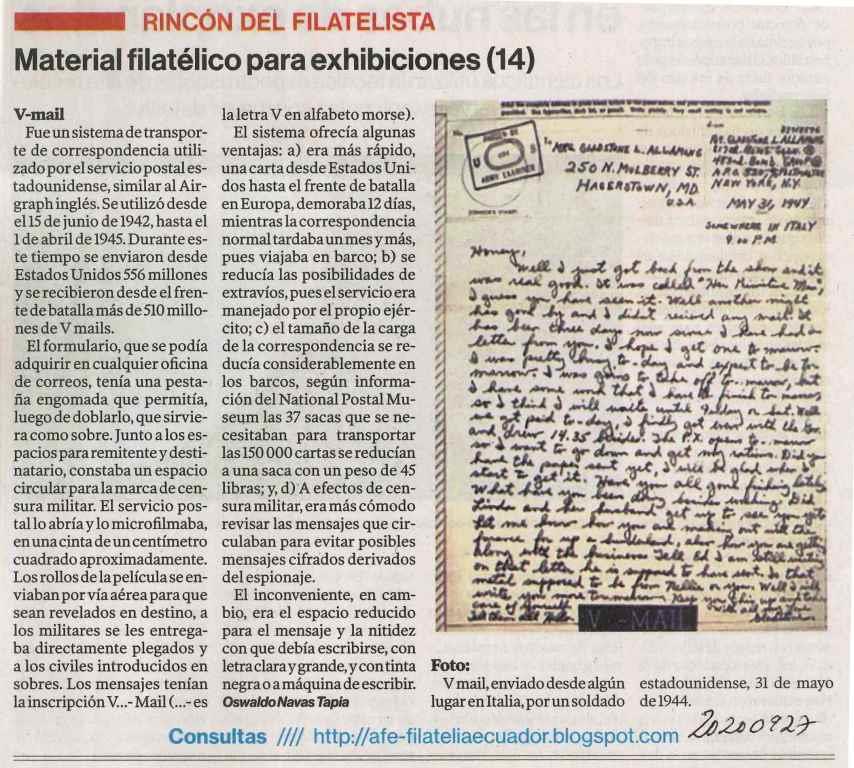 RINCÓN DEL FILATELISTA
Material filatélico para exhibiciones (14)
V-mail
Fue un sistema de transpor-
te de correspondencia utili-
zado por el servicio postal es-
tadounidense, similar al Air-
graph inglés. Se utilizó desde
el 15 de junio de 1942, hasta el
1 de abril de 1945. Durante es-
te tiempo se enviaron desde
Estados Unidos 556 millones
y se recibieron desde el fren-
te de batalla más de 510 millo-
nes de V mails.
El formulario, que se podía
adquirir en cualquier oficina
de correos, tenía una pesta-
ña engomada que permitía,
luego de doblarlo, que sirvie-
ra como sobre. Junto a los es-
pacios para remitente y desti-
natario, constaba un espacio
circular para la marca de cen-
sura militar. El servicio pos-
tal lo abría y lo microfilmaba,
en una cinta de un centímetro
cuadrado aproximadamente.
Los rollos de la película se en-
viaban por vía aérea para que
sean revelados en destino, a
los militares se les entrega-
ba directamente plegados y
a los civiles introducidos en
sobres. Los mensajes tenían
la inscripción V...- Mail (...- es
la letra V en alfabeto morse).
El sistema ofrecía algunas
ventajas: a) era más rápido,
una carta desde Estados Uni-
dos hasta el frente de batalla
en Europa, demoraba 12 días,
mientras la correspondencia
normal tardaba un mes y más,
pues viajaba en barco; b) se
reducía las posibilidades de
extravíos, pues el servicio era
manejado por el propio ejér-
cito; c) el tamaño de la carga
de la correspondencia se re-
ducía considerablemente en
los barcos, según informa-
ción del National Postal Mu-
seum las 37 sacas que se ne-
cesitaban para transportar
las 150 000 cartas se reducían
a una saca con un peso de 45
libras; y, d) A efectos de cen-
sura militar, era más cómodo
revisar las mensajes que cir-
culaban para evitar posibles
mensajes cifrados derivados
del espionaje.
El inconveniente, en cam-
bio, era el espacio reducido
para el mensaje y la nitidez
con que debía escribirse, con
letra clara y grande, y con tinta
negra o a máquina de escribir.
Oswaldo Navas Tapia
ARMY EXAMINER
To: MRS. GLADSTONE L. ALLAMONG
250 N. MULBERRY ST.
HAGERSTOWN, MD.
U.S.A.
GLADSTONE L. ALLAMONG
NEW YORK, N.Y.
MAY 31, 1944
SOMEWHERE IN ITALY
9:00 P.M.
Honey,
Well I just got back from the show and it
was real good. It was called
I guess you have seen it. Well another night
has gone by and I didn't recieved any mail. It
has been three days now since I have had a
letter from you. I hope I get one to-morrow.
I was pretty busy to-day and expect to be to-
morrow. I was going to take off to-morrow, but
I have some work that I have to finish to-morrow,
so I think I will waite until Friday or Sat. Well
we got paid to-day, I finally got even with the Gov.
and drew 14.35 besides. The P.X. opens to-morrow
so I want to go down and get my rations. Did you
have the paper sent yet, I will be glad when I
start to get it. Have you all gone fishing lately
What have you been doing besides working. Did
and her husband get up to see you yet
let me know how you are making out with the
V - MAIL
Foto:
V mail, enviado desde algún
lugar en Italia, por un soldado
estadounidense, 31 de mayo
de 1944.
Consultas //// http://afe-filateliaecuador.blogspot.com
20200927